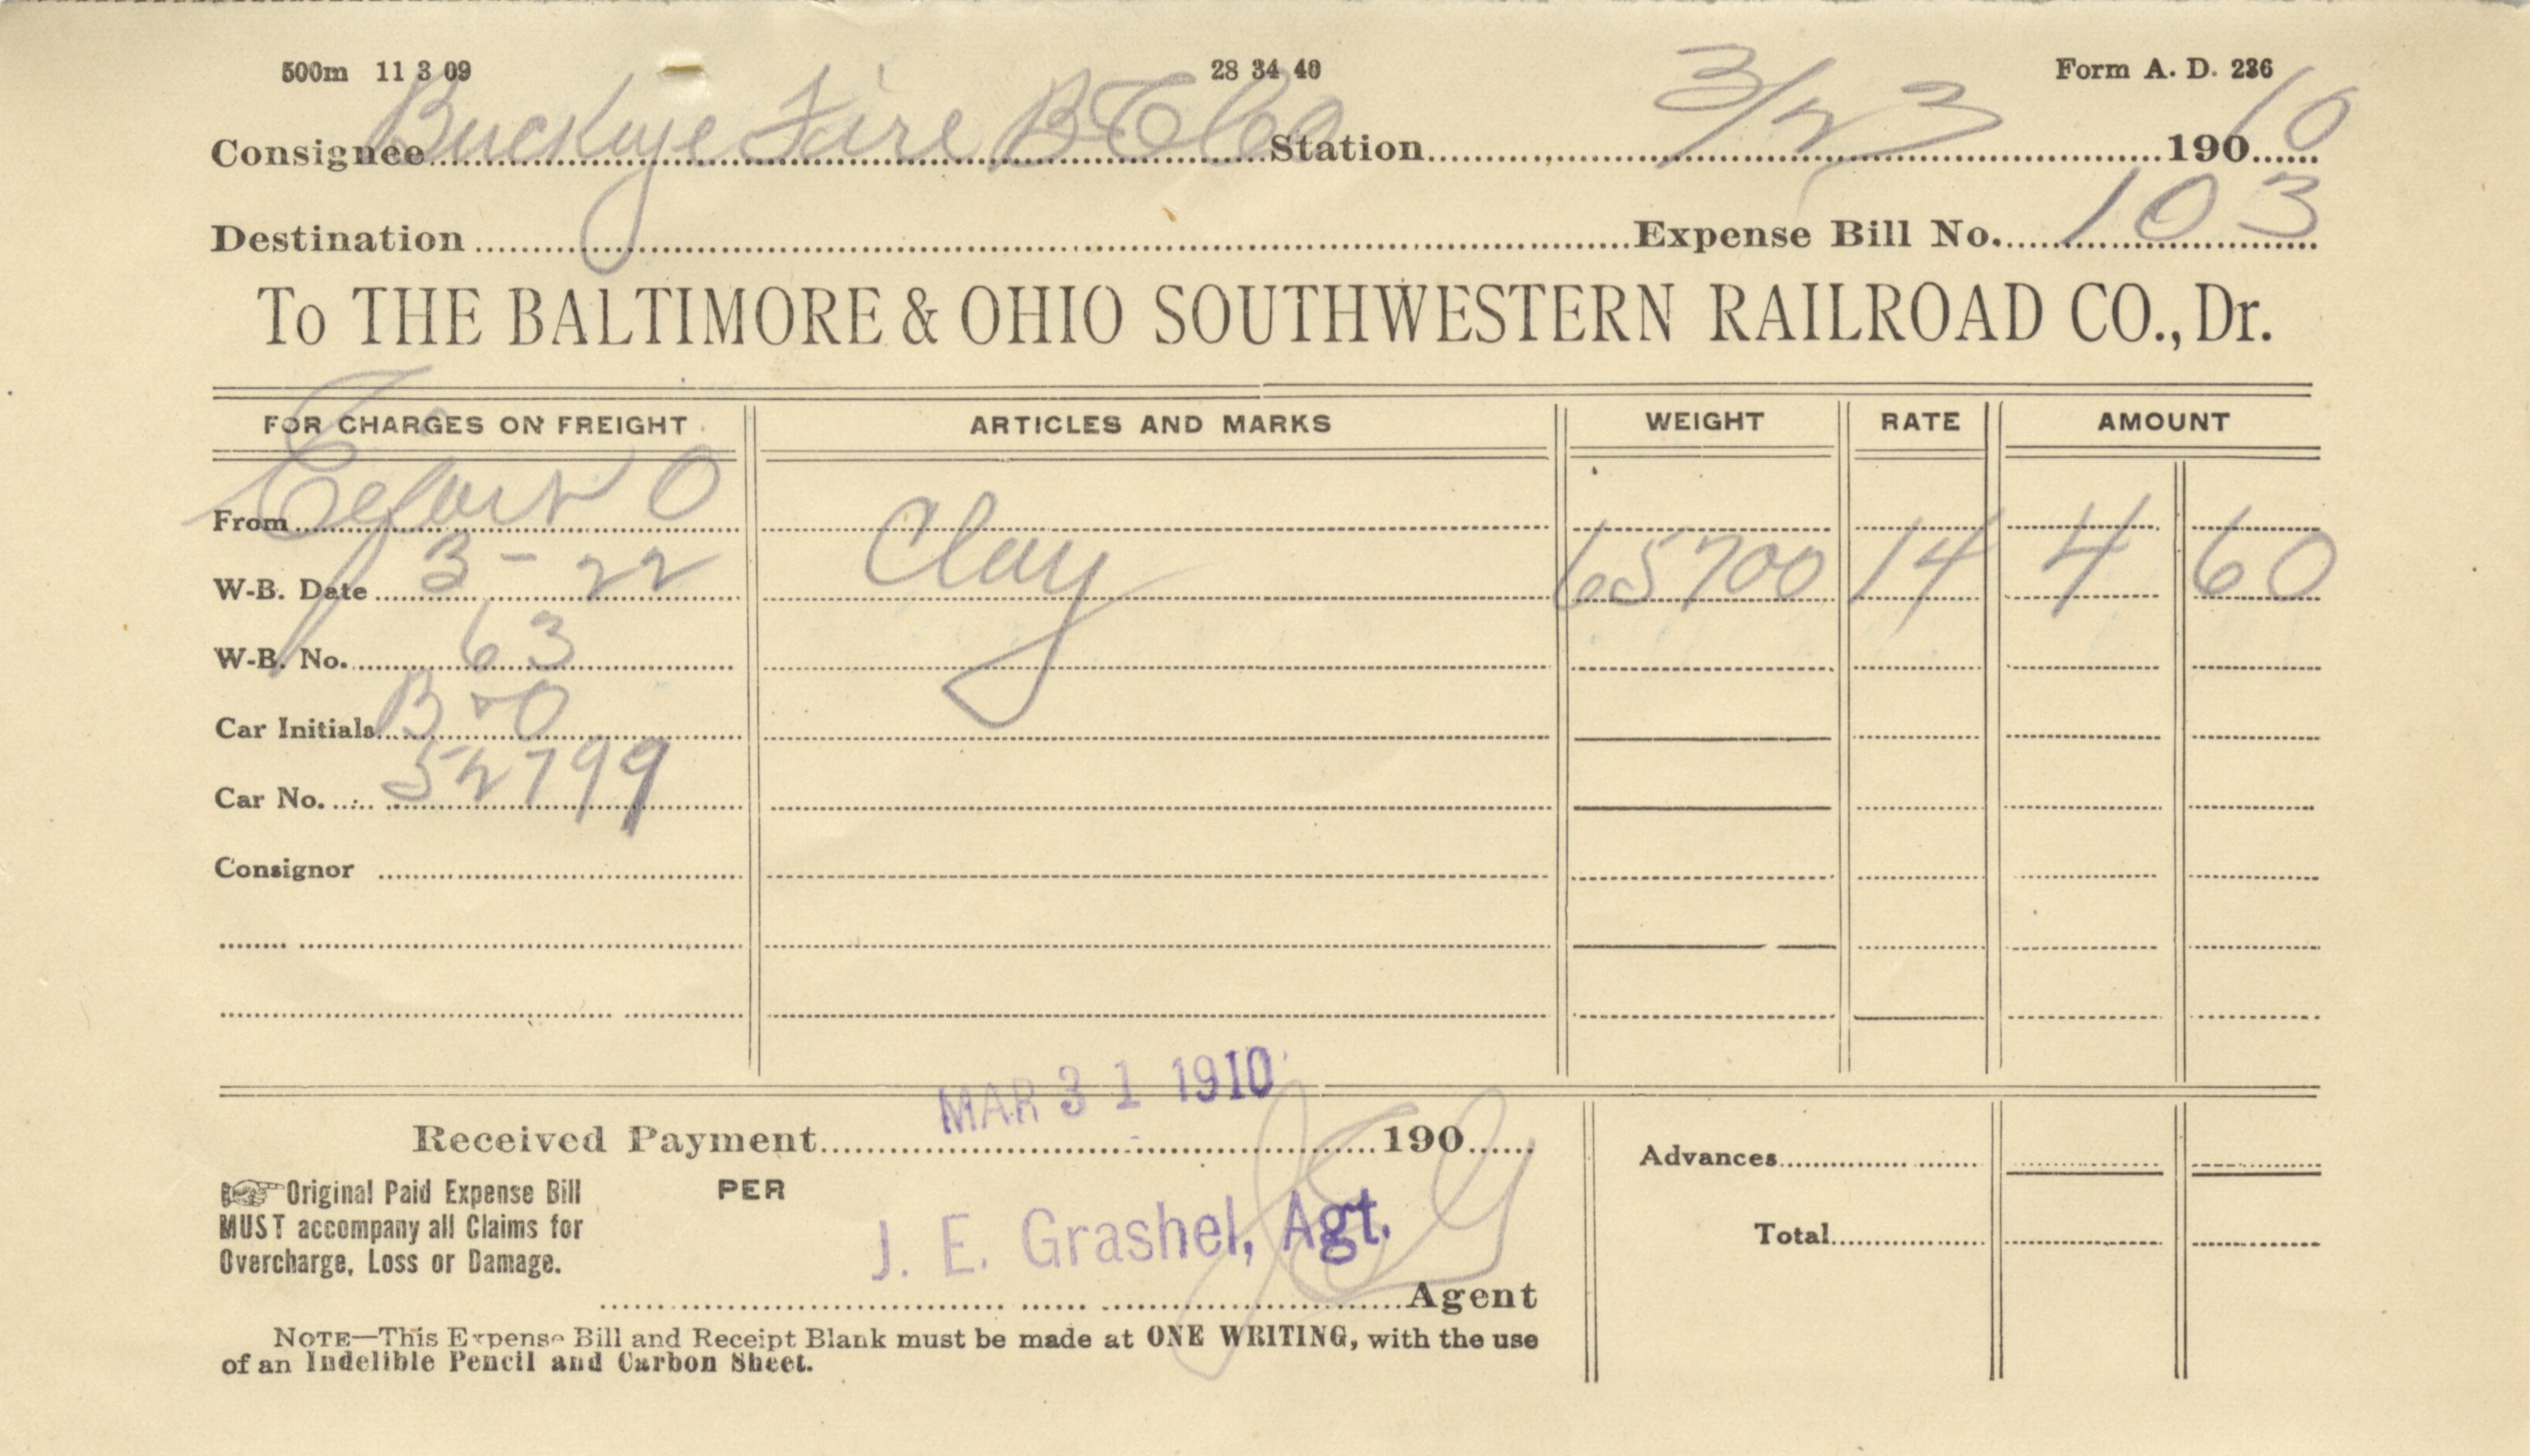 500m 11 3 09 28 34 40 Form A. D. 236
Consignee Buckeye Fire B Co Station 3/23 190 10
Destination Expense Bill No. 103
To THE BALTIMORE & OHIO SOUTHWESTERN RAILROAD CO., Dr.
FOR CHARGES ON FREIGHT ARTICLES AND MARKS WEIGHT RATE AMOUNT
From O
W-B. Date 3-22 Clay 65700 14 4 60
W-B. No. 63
Car Initials B&O
Car No. 52799
Consignor
MAR 31 1910
Received Payment 190
Advances
Original Paid Expense Bill PER
MUST accompany all Claims for J. E. Grashel, Agt. JEG
Total
Overcharge, Loss or Damage.
Agent
NOTE—This Expense Bill and Receipt Blank must be made at ONE WRITING, with the use
of an Indelible Pencil and Carbon Sheet.